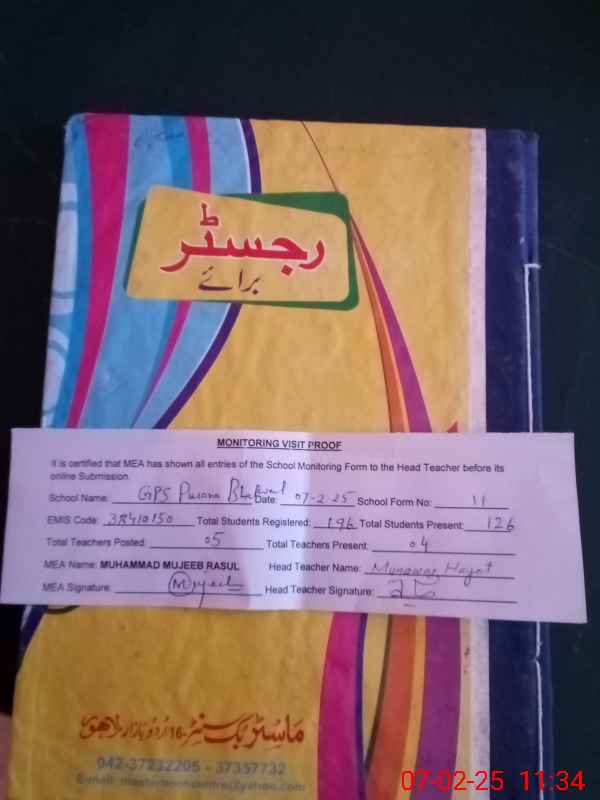 رجسٹر
برائے
MONITORING VISIT PROOF
It is certified that MEA has shown all entries of the School Monitoring Form to the Head Teacher before its
online Submission.
School Name: GPS Purana Date: 07-2-25 School Form No: 11
EMIS Code: Total Students Registered: 196 Total Students Present: 126
Total Teachers Posted: 05 Total Teachers Present: 04
MEA Name: MUHAMMAD MUJEEB RASUL Head Teacher Name: Munawar Hayat
MEA Signature: Mujeeb Head Teacher Signature:
ماسٹر بک سنٹر-16 اُردو بازار-لاہور
042-37232205 - 37357732
E-mail: masterbookcentre@yahoo.com
07-02-25 11:34